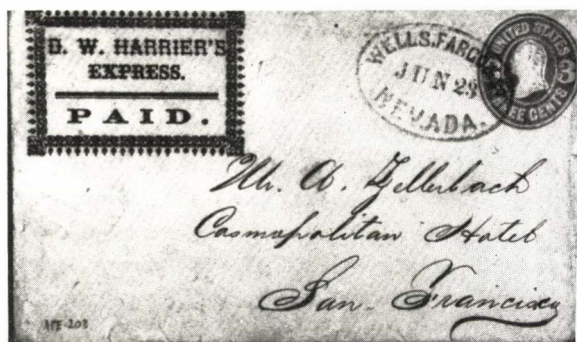 D. W. HARRIER'S
EXPRESS.
PAID.
WELLS, FARGO
JUN 23
NEVADA.
UNITED STATES
3 3
THREE CENTS
Mr. A. Zellerbach
Cosmopolitan Hotel
San Francisco